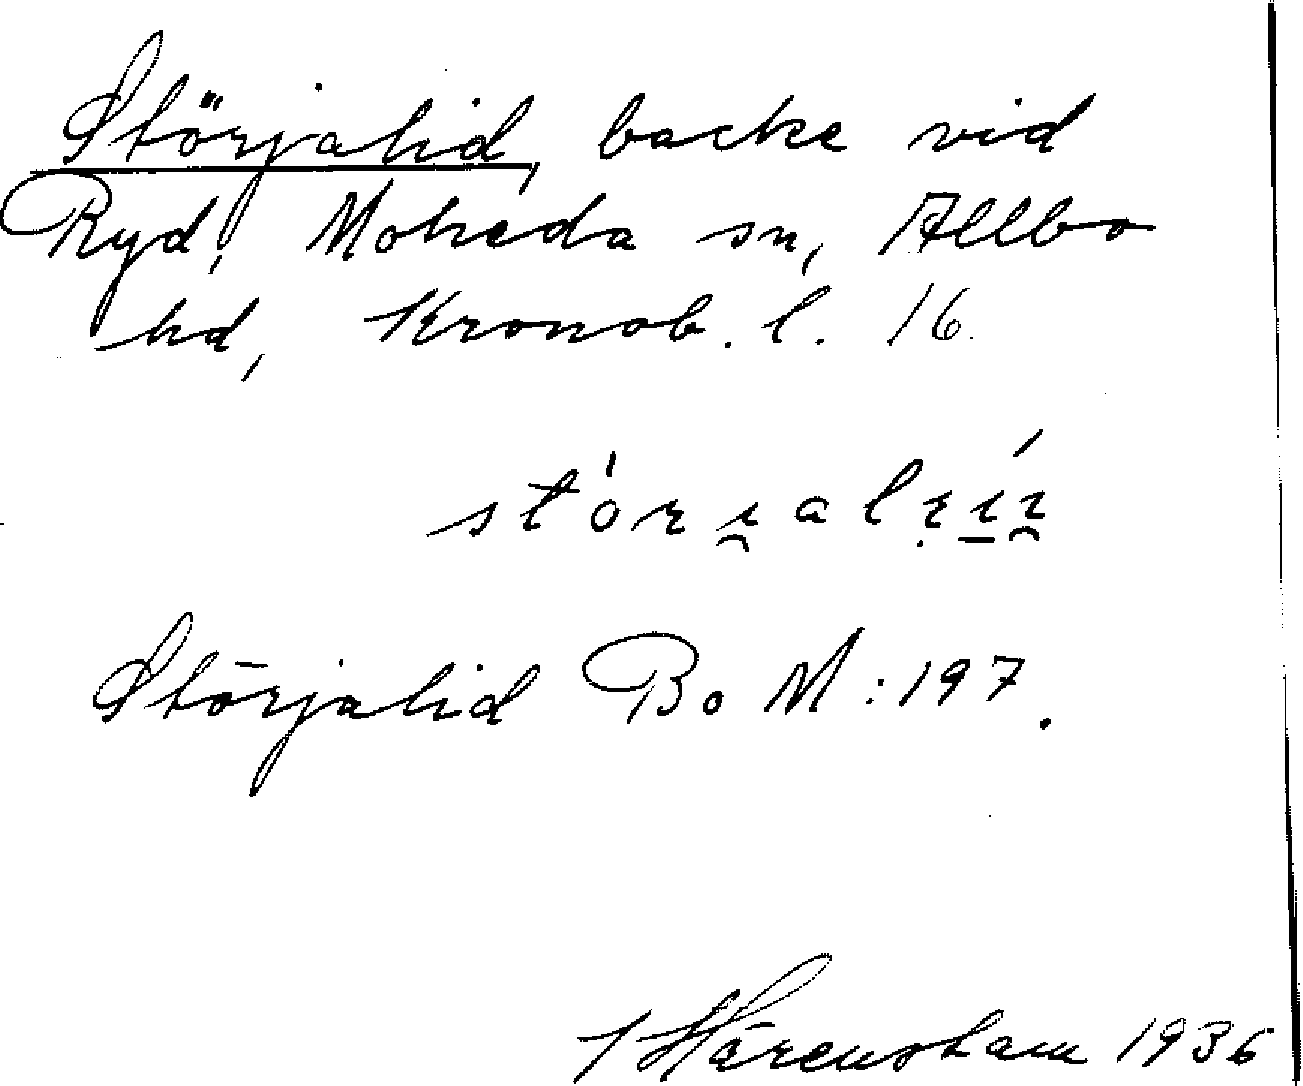 Störjalid, backe vid
Ryd, Moheda sn, Allbo
hd, Kronob. l. 16.
Störjalid Bo M: 197.
1936